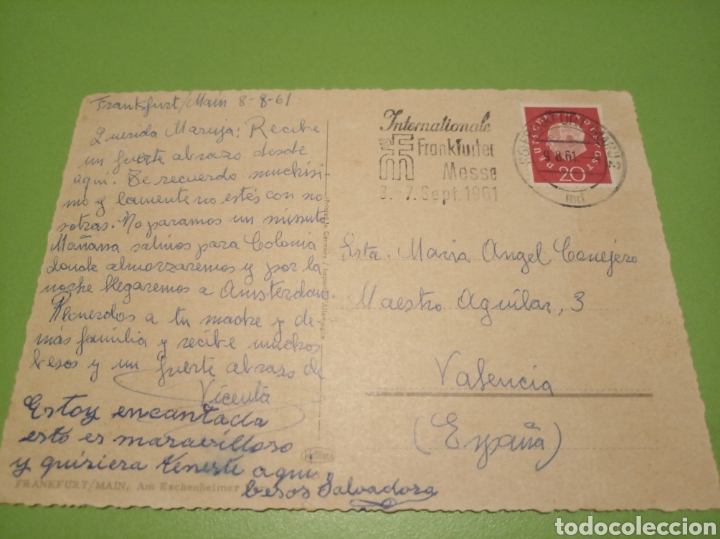 Frankfurt/Main 8-8-61
Querida Maruja: Recibe
un fuerte abrazo desde
aqui. Te recuerdo muchisi-
mo y lamento no estés con no
sotras. No paramos un minuto
Mañana salimos para Colonia
donde almorzaremos y por la
noche llegaremos a Amsterdam.
Recuerdos a tu madre y de-
más familia y recibe muchos
besos y un fuerte abrazo de
Vicenta
Estoy encantada
esto es maravilloso
y quisiera tenerte aqui.
besos Salvadora
FRANKFURT/MAIN, Am Eschenheimer
Internationale
Frankfurter
Messe
3.-7. Sept. 1961
8.61
DEUTSCHE BUNDESPOST
20
Srta. Maria Angel Conejero
Maestro Aguilar, 3
Valencia
(España)
todocoleccion.net